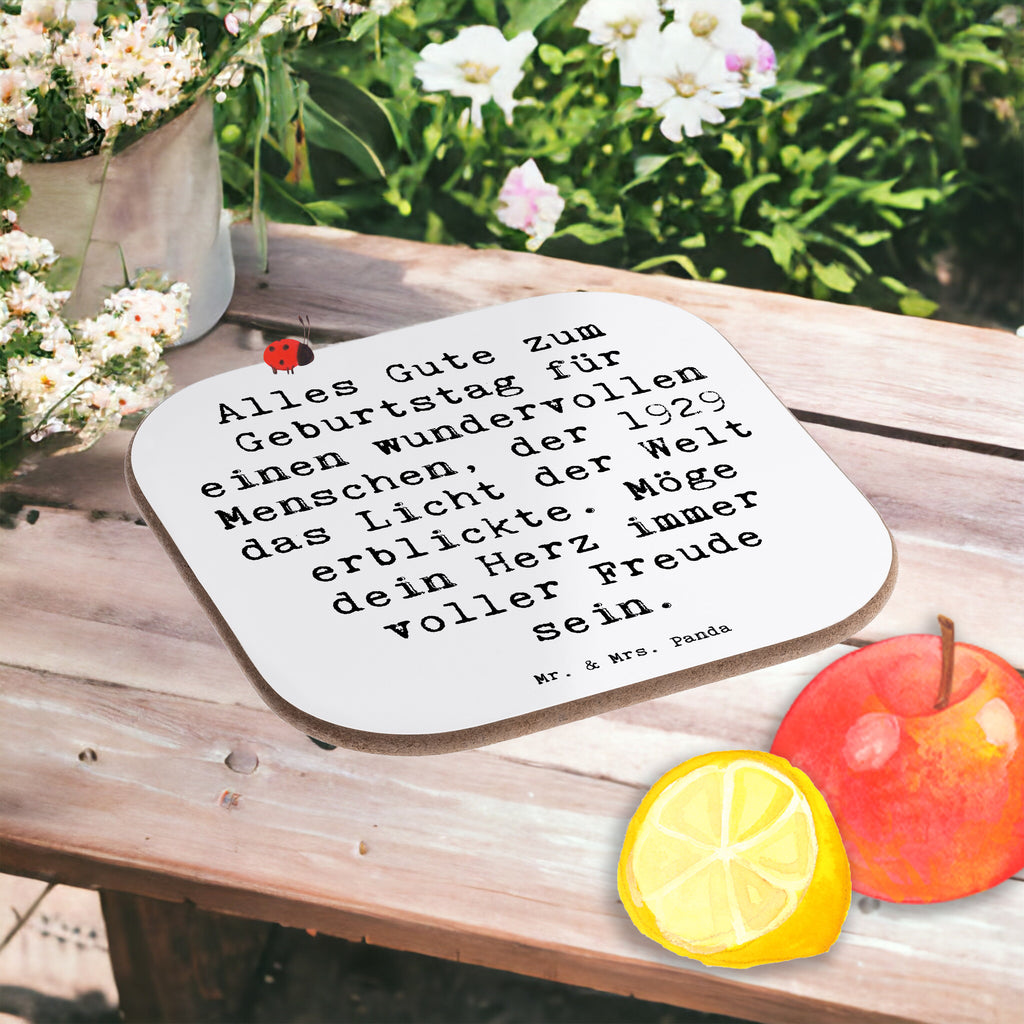 Alles Gute zum
Geburtstag für
einen wundervollen
Menschen, der 1929
das Licht der Welt
erblickte. Möge
dein Herz immer
voller Freude
sein.
Mr. & Mrs. Panda